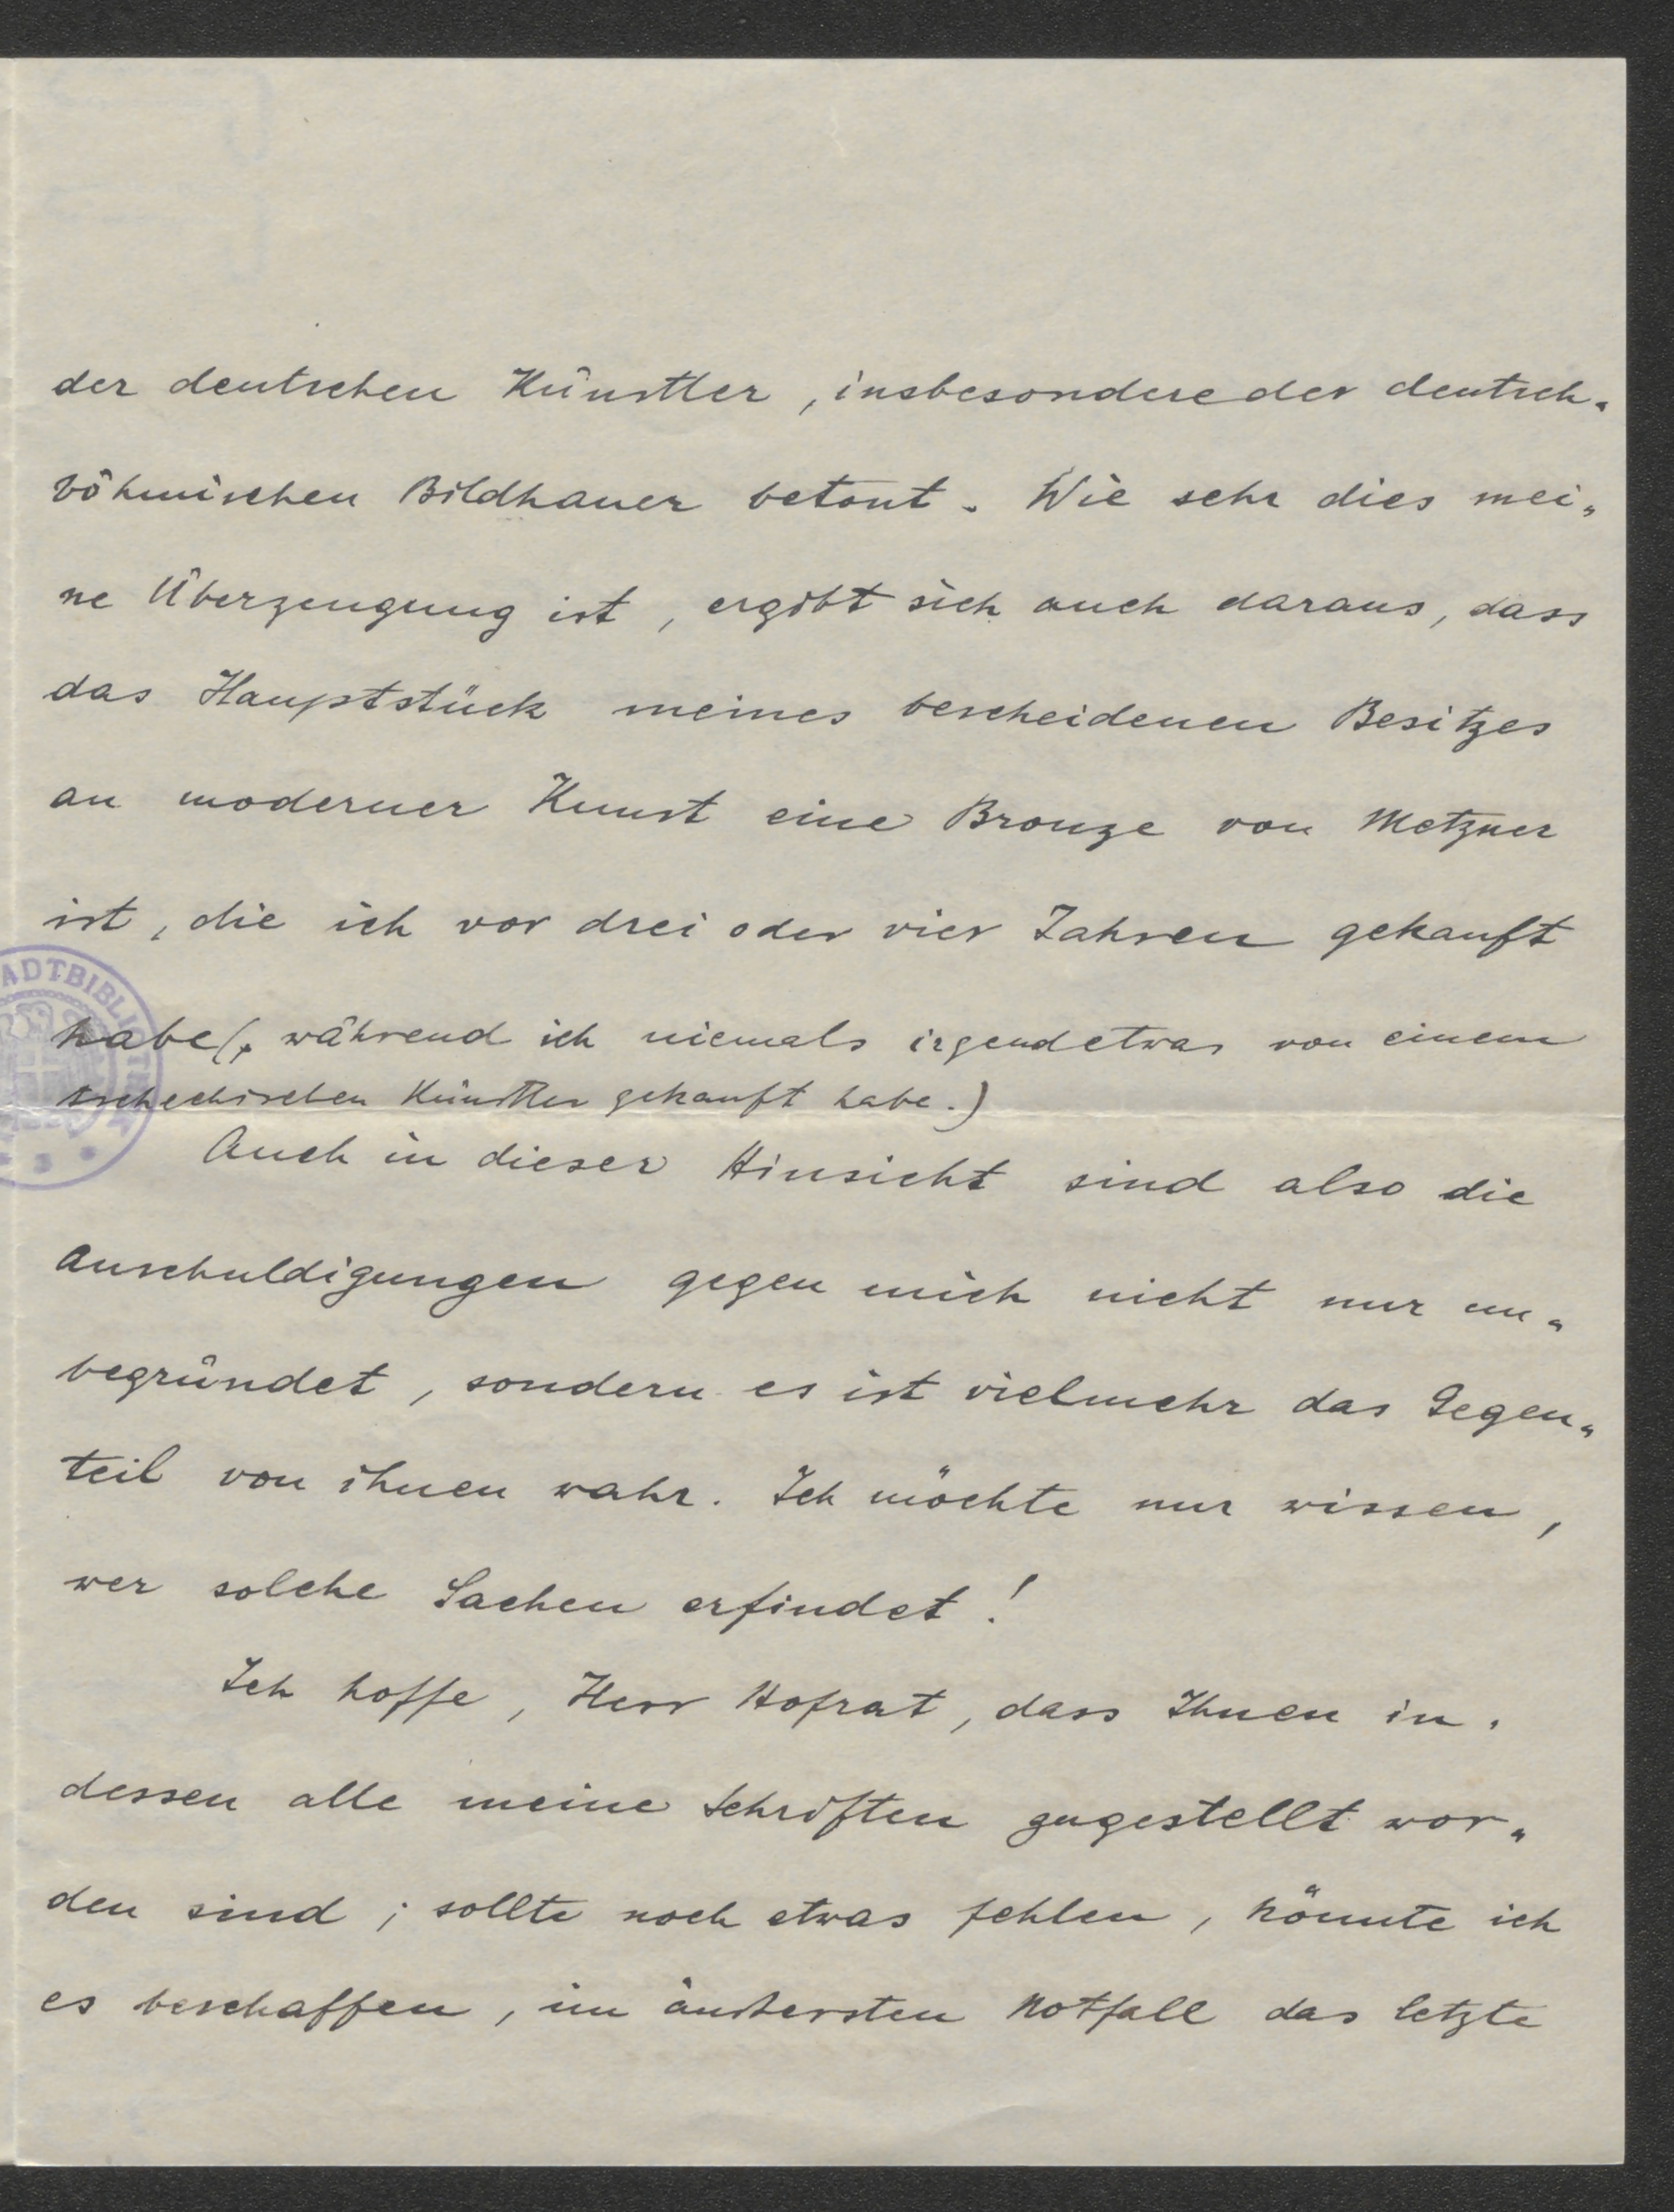 der deutschen Künstler, insbesondere der deutsch-
böhmischen Bildhauer betont. Wie sehr dies mei-
ne Überzeugung ist, ergibt sich auch daraus, dass
das Hauptstück meines bescheidenen Besitzes
an moderner Kunst eine Bronze von Metzner
ist, die ich vor drei oder vier Jahren gekauft
habe(, während ich niemals irgendetwas von einem
tschechischen Künstler gekauft habe.)
Auch in dieser Hinsicht sind also die
Anschuldigungen gegen mich nicht nur un-
begründet, sondern es ist vielmehr das Gegen-
teil von ihnen wahr. Ich möchte nur wissen,
wer solche Sachen erfindet!
Ich hoffe, Herr Hofrat, dass Ihnen in-
dessen alle meine Schriften zugestellt wor-
den sind; sollte noch etwas fehlen, könnte ich
es beschaffen, im äußersten Notfall das letzte